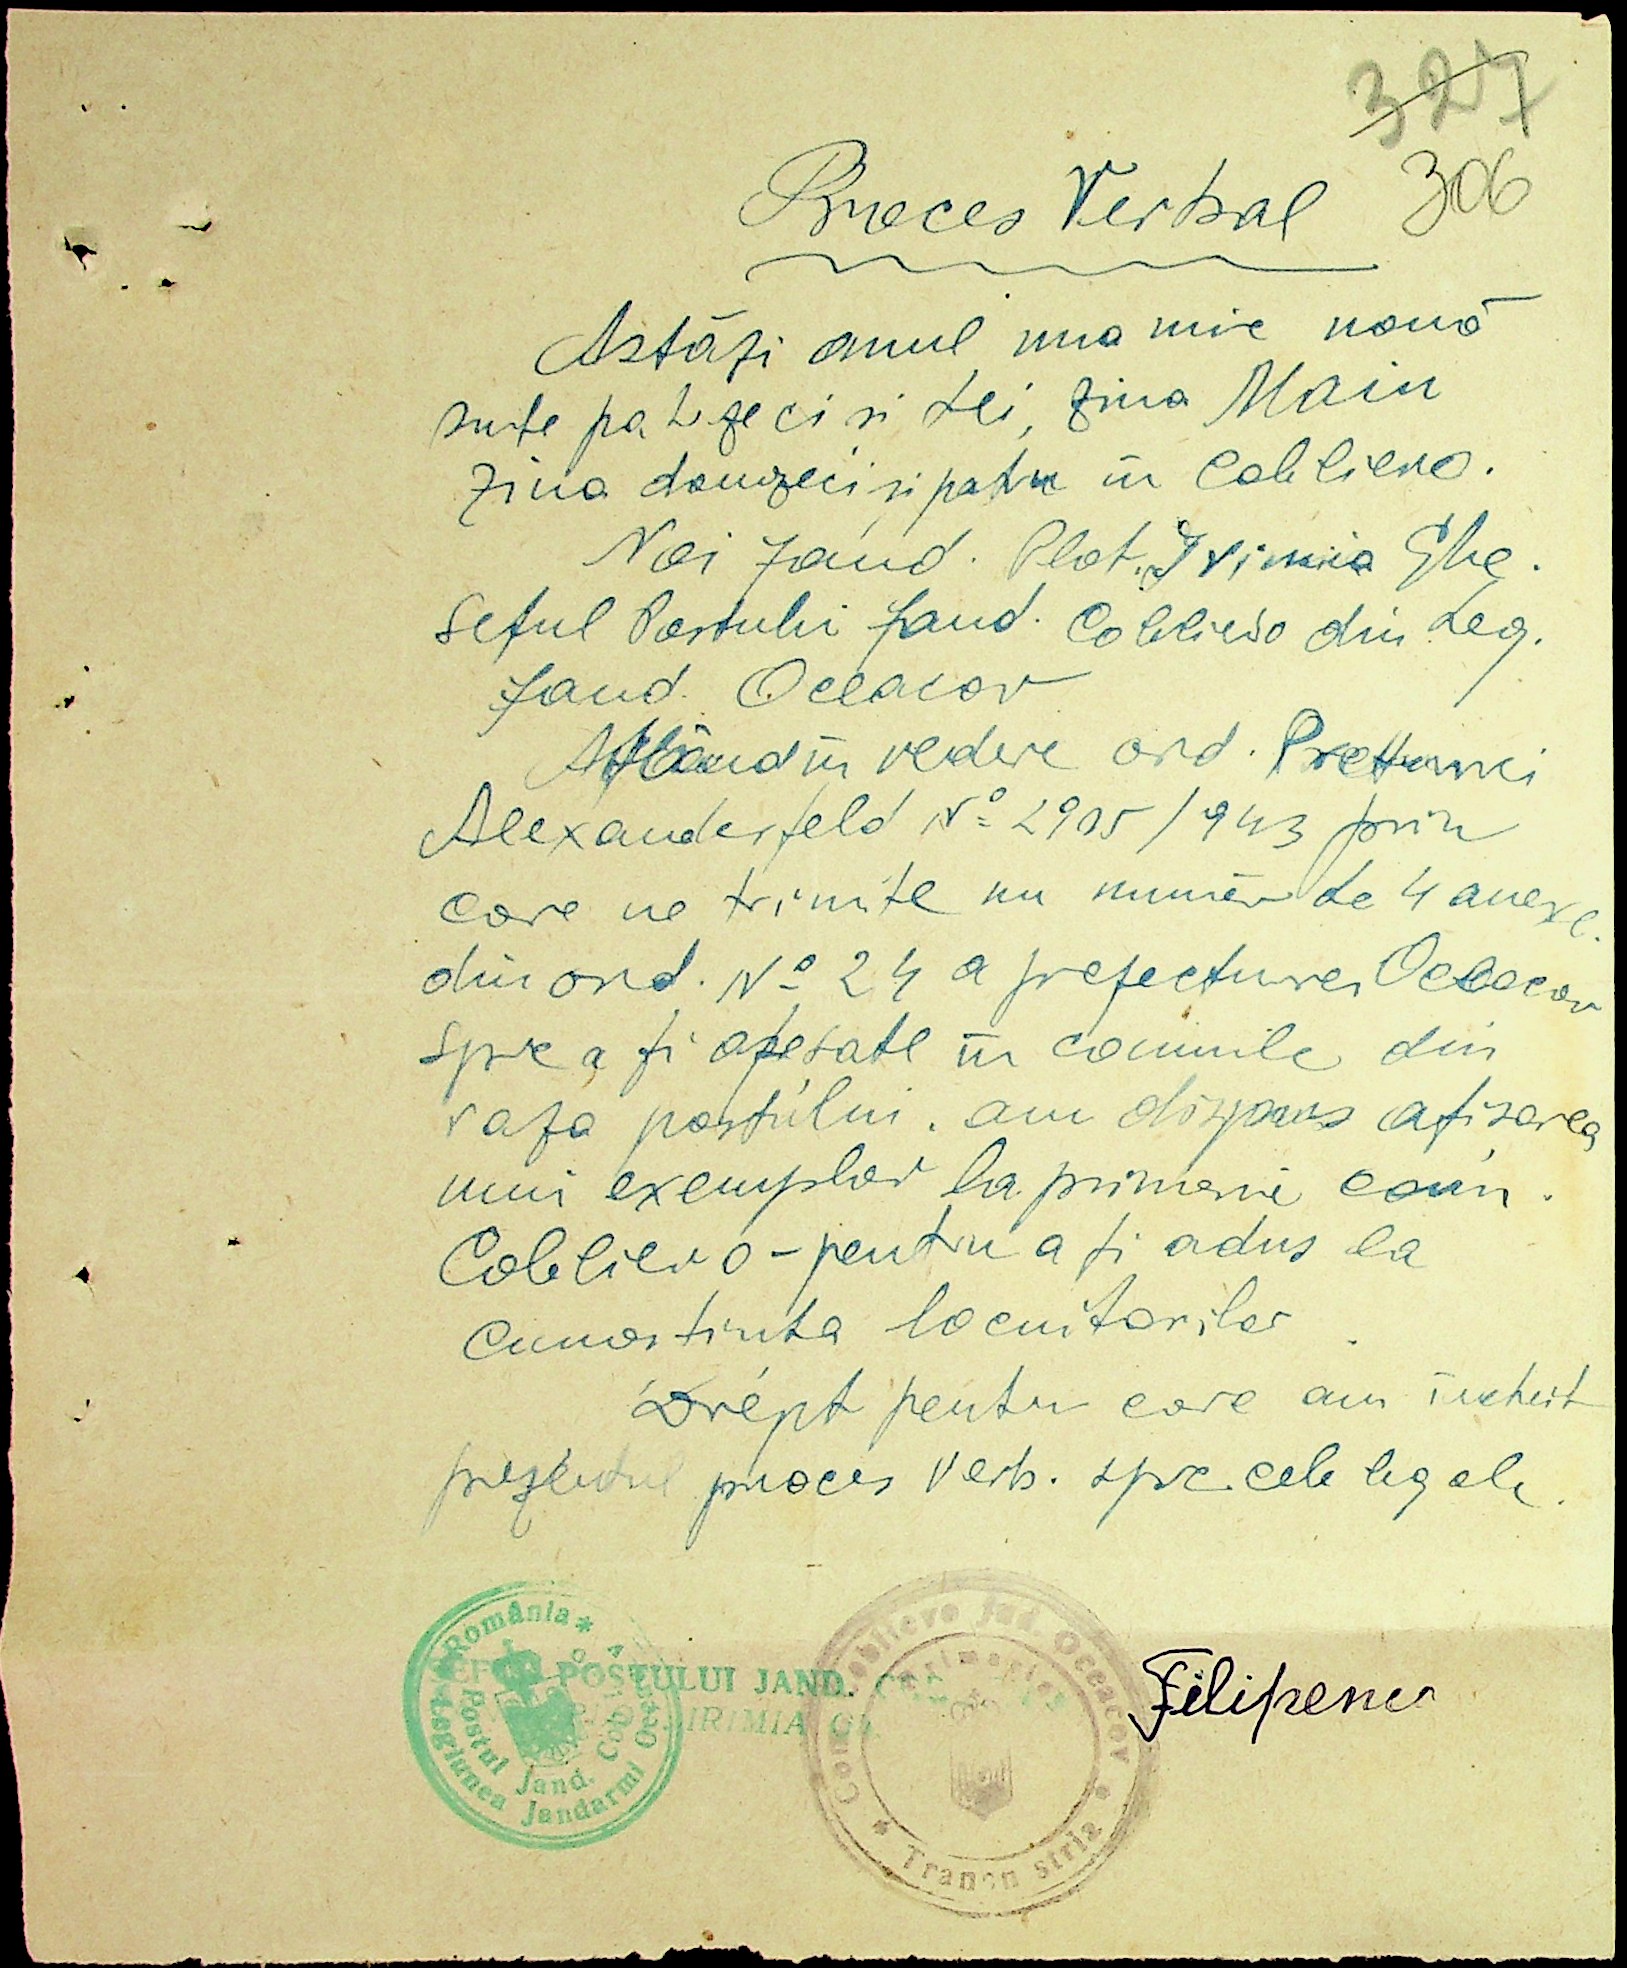 327
306
Proces Verbal
Astăzi anul una mie nouă
sute patzeci si trei, ziua Main
ziua douăzeci si patru in Cobliewo.
Noi Jand. Plot. Irimia Ghe.
Seful Postului Jand. Cobliewo din Leg.
Jand. Oceacov
Având în vedere ord. Preturei
Alexanderfeld No 2905/943 prin
care ne trimite un număr de 4 anexe.
din ord. No 24 a prefecturei Oceacov
spre a fi afisate în comunile din
raza postului. am dispus afisarea
unui exemplar la primarie com.
Cobliewo - pentru a fi adus la
cunostinta locuitorilor.
Drept pentru care am încheit
prezentul proces verb. spre cele legale.
România
Legiunea Jandarmi
Postul Jand.
POSTULUI JAND.
IRIMIA
Coblievo Jud. Oceacov
Transnistria
Filipenco